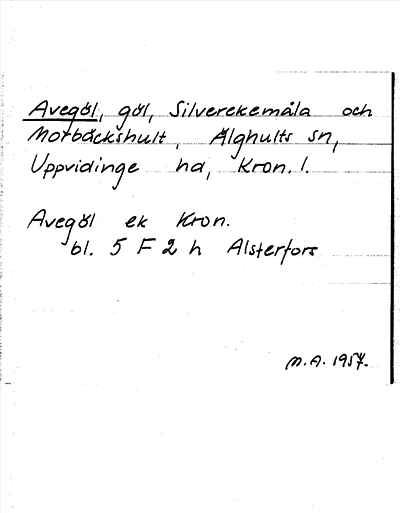 Avegöl, göl, Silverekemåla och
Morbäckshult, Älghults sn,
Uppvidinge hd, Kron. l.
Avegöl ek Kron.
bl. 5 F 2 h Alsterfors
M.A. 1957.